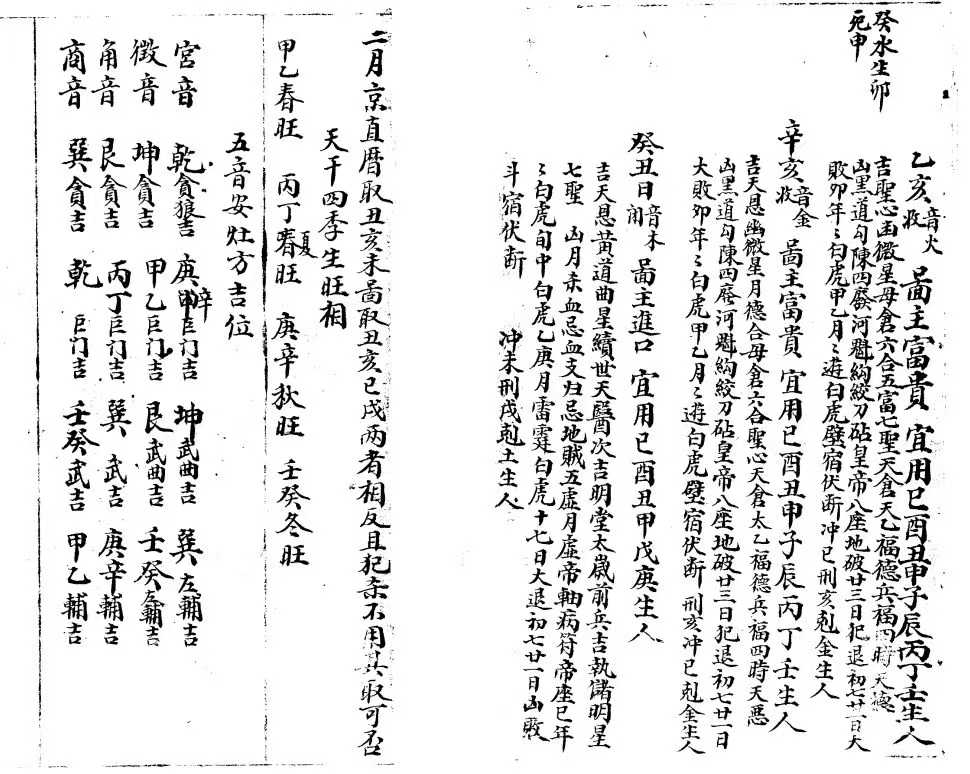 癸水生卯
死申
乙亥音火收 啚主富貴 宜用巳酉丑申子辰丙丁壬生人
吉聖心幽微星母倉六合五富七聖天倉天乙福德兵福四時天德
凶黑道勾陳四廢河魁絇絞刀砧皇帝八座地破廿三日犯退初七廿一日大
敗卯年〻白虎甲乙月〻遊白虎壁宿伏断冲巳刑亥剋金生人
辛亥音金收 啚主富貴 宜用巳酉丑申子辰丙丁壬生人
吉天恩幽微星月德合母倉六合聖心天倉太乙福德兵福四時天悪
凶黑道勾陳四廢河魁絇絞刀砧皇帝八座地破廿三日犯退初七廿一日
大敗卯年〻白虎甲乙月〻遊白虎壁宿伏断 刑亥冲巳剋金生人
癸丑日音木閉 啚主進口 宜用巳酉丑甲戊庚生人
吉天恩黄道曲星續世天醫次吉明堂太歲前兵吉執儲明星
七聖 凶月杀血忌血支归忌地賊五虛月虛帝軸病符帝座巳年
〻白虎旬中白虎乙庚月雷霆白虎十七日大退初七廿一日凶敗
斗宿伏断 冲未刑戌剋土生人
二月京直曆取丑亥未啚取丑亥巳戌两者相反且犯杀不用其取可否
天干四季生旺相
甲乙春旺 丙丁春夏旺 庚辛秋旺 壬癸冬旺
五音安灶方吉位
宮音 乾貪狼吉 庚申辛巨门吉 坤武曲吉 巽左輔吉
徵音 坤貪吉 甲乙巨门吉 艮武曲吉 壬癸左輔吉
角音 艮貪吉 丙丁巨门吉 巽武吉 庚辛輔吉
商音 巽貪吉 乾巨门吉 壬癸武吉 甲乙輔吉